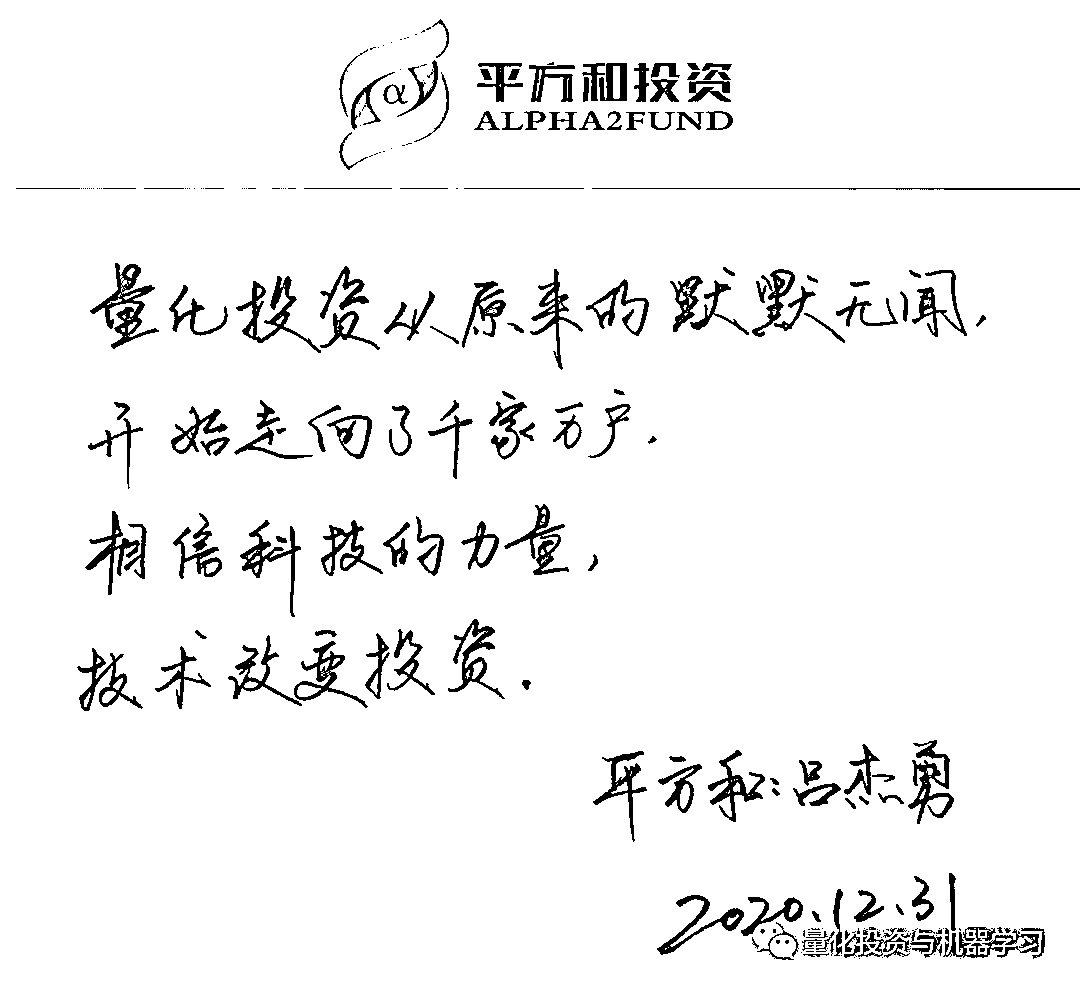 平方和投资
ALPHA2FUND
量化投资从原来的默默无闻,
开始走向了千家万户.
相信科技的力量,
技术改变投资.
平方和:吕杰勇
2020.12.31
量化投资与机器学习